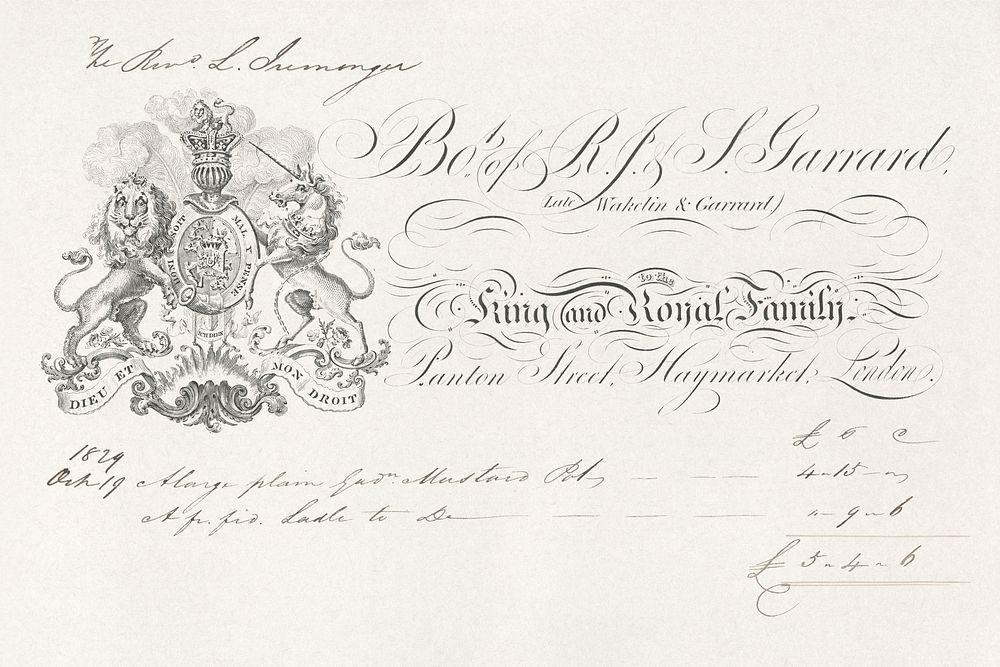 The Revd. L. Iremonger
Bot. of R. J. & S. Garrard,
(Late Wakelin & Garrard)
to the
King and Royal Family.
Panton Street, Haymarket, London.
HONI SOIT QUI MAL Y PENSE
ICH DIEN
DIEU ET MON DROIT
£ s d
1829
Oct 19 A large plain Mustard Pot 4 - 15 -
A fid. Ladle to Do " - 9 - 6
£ 5 - 4 - 6